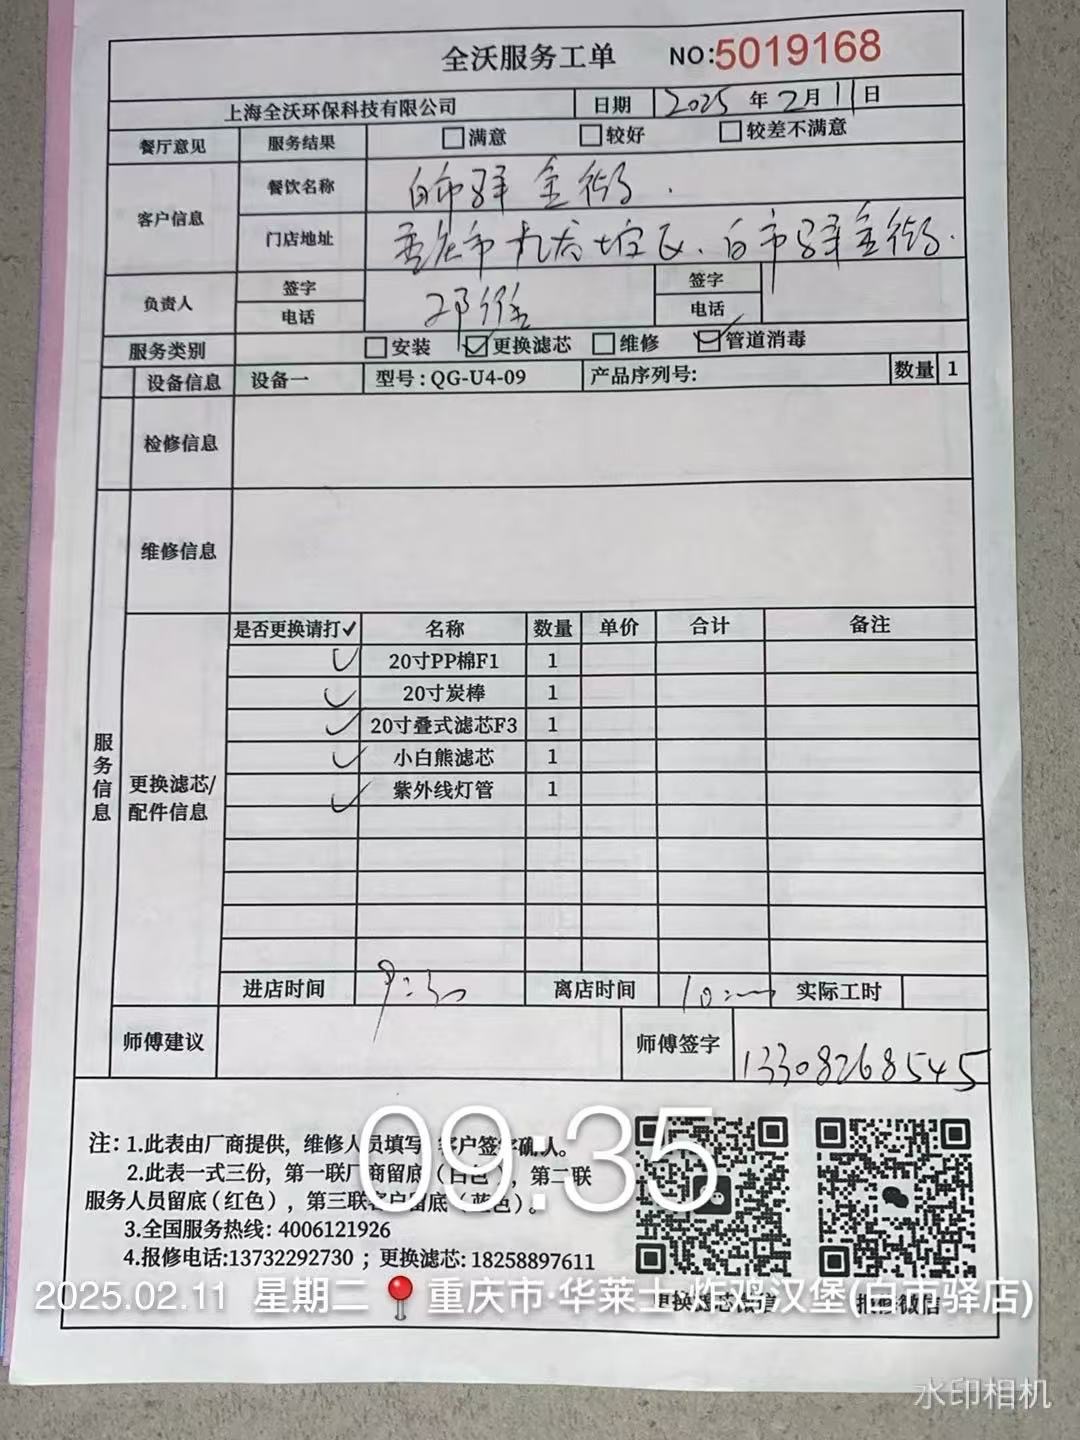 全沃服务工单 NO:5019168
上海全沃环保科技有限公司 日期 2025年2月11日
餐厅意见 服务结果 □满意 □较好 □较差不满意
客户信息 餐饮名称 白市驿金街
门店地址 重庆市九龙坡区.白市驿金街.
负责人 签字 邓 签字
电话 电话
服务类别 □安装 ☑更换滤芯 □维修 ☑管道消毒
设备信息 设备一 型号:QG-U4-09 产品序列号: 数量 1
检修信息
维修信息
服务信息
更换滤芯/配件信息
是否更换请打✓ 名称 数量 单价 合计 备注
✓ 20寸PP棉F1 1
✓ 20寸炭棒 1
✓ 20寸叠式滤芯F3 1
✓ 小白熊滤芯 1
✓ 紫外线灯管 1
进店时间 9:30 离店时间 10:00 实际工时
师傅建议 师傅签字 13308268545
注: 1.此表由厂商提供, 维修人员填写, 客户签字确认。
2.此表一式三份, 第一联厂商留底(白色), 第二联
服务人员留底(红色), 第三联客户留底(蓝色)。
3.全国服务热线: 4006121926
4.报修电话:13732292730 ; 更换滤芯: 18258897611
更换滤芯微信 报修微信
09:35
2025.02.11 星期二 重庆市·华莱士·炸鸡汉堡(白市驿店)
水印相机